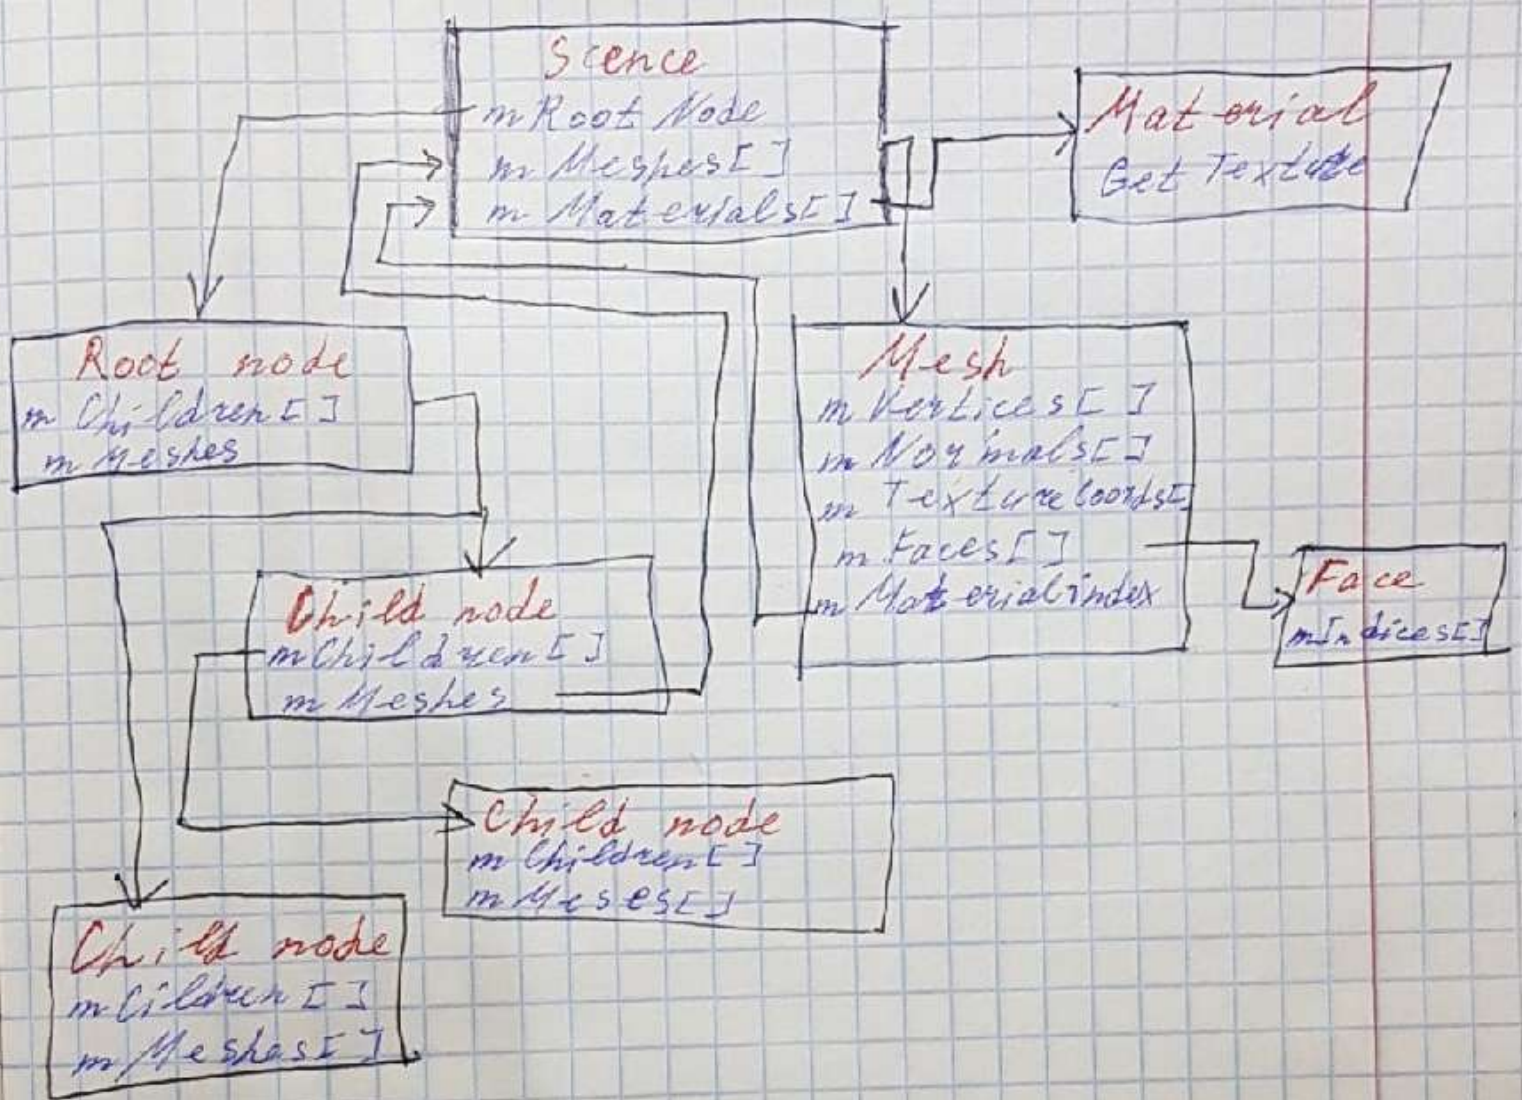 Scence
mRoot Node
m Meshes[]
m Materials[]
Material
Get Texture
Root node
m Children[]
m Meshes
Mesh
m Vertices[]
m Normals[]
m Texture Coords[
m Faces[]
m Material index
Face
mIndices[]
Child node
mChildren[]
m Meshes
Child node
m Children[]
m Meses[]
Child node
m Cildren[]
m Meshes[]